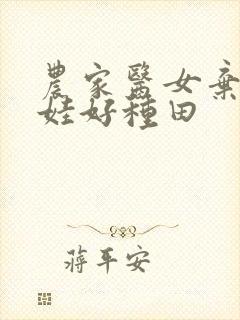 農家醫女棄
娃好種田
蔣平安